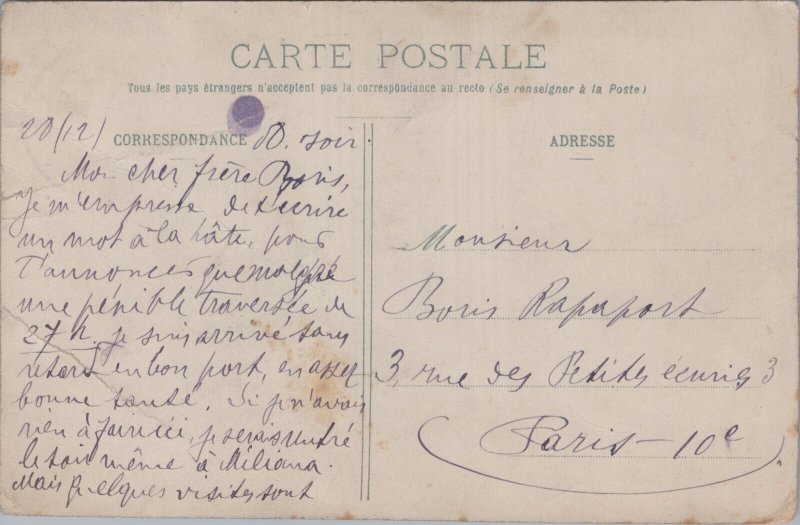 CARTE POSTALE
Tous les pays étrangers n'acceptent pas la correspondance au recto (Se renseigner à la Poste)
CORRESPONDANCE
ADRESSE
28/12/ soir
Mon cher frère Boris,
Je m'empresse de t'écrire
un mot à la hâte, pour
t'annoncer que malgré
une pénible traversée de
27 h. je suis arrivé sans
retard en bon port, en assez
bonne santé. Si je n'avais
rien à faire ici, je serais rentré
le soir même à Miliana.
Mais quelques visites sont
Monsieur
Boris Rapaport
3, rue des Petites écuries, 3
Paris - 10e